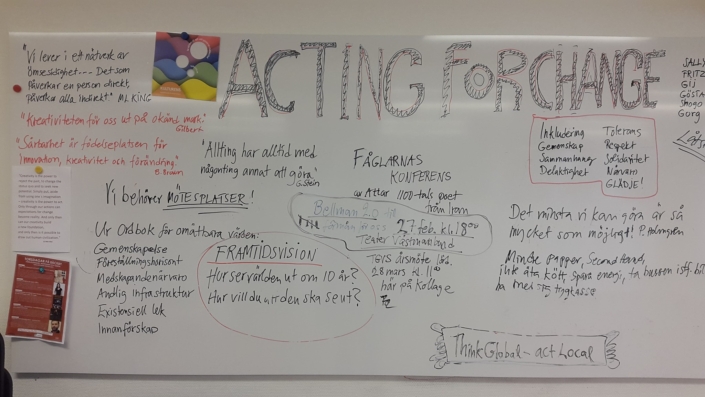 ACTING FOR CHANGE
"Vi lever i ett nätverk av
ömsesidighet--- Det som
påverkar en person direkt,
påverkar alla indirekt" ML KING
"Kreativiteten för oss ut på okänd mark"
Gilbert
"Sårbarhet är födelseplatsen för
innovation, kreativitet och förändring"
B. Brown
"Allting har alltid med
någonting annat att göra"
G. Stein
Vi behöver MÖTESPLATSER!
Ur Ordbok för omätbara värden:
Gemenskapelse
Föreställningshorisont
Medskapandenärvaro
Andlig infrastruktur
Existensiell lek
Innanförskap
FRAMTIDSVISION
Hur ser världen ut om 10 år?
Hur vill du att den ska se ut?
FÅGLARNAS
KONFERENS
av Attar 1100-tals poet
från Iran
Bellman 2.0
27 feb. kl. 18 00
Teater Västmanland
årsmöte lör.
28 mars kl. 11 00
här på Kollage
Inkludering
Gemenskap
Sammanhang
Delaktighet
Tolerans
Respekt
Solidaritet
Närvaro
GLÄDJE!
Det minsta vi kan göra är så
mycket som möjligt! P. Holmgren
Mindre papper, Second hand,
inte äta kött, spara energi, ta bussen istf. bil
ta med tygkasse
Think Global - act Local
SALLY
FRITZ
GIJ
GÖSTA
Shogo
Gorg